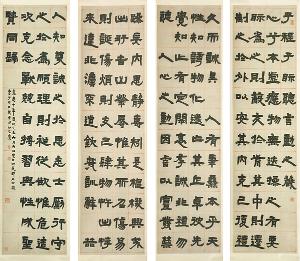 心兮本虛應物無迹操之有要
眎為之則蔽交於前其中則遷
制之於外以安其內克己復禮
久而誠矣 人有秉彝本乎天
性知誘物化遂亡其正卓彼先
覺知止有定閑邪存誠非禮勿
聽 人心之動因言以宣發禁
躁妄內斯靜專矧是樞機興戎
出好吉凶榮辱惟其所召傷易
則誕傷煩則支己肆物忤出悖
來違非灋不道欽哉訓辭 哲
人知幾誠之於思志士厲行守
之於為順理則裕從欲惟危造
次克念戰兢自持習與性成聖
賢同歸